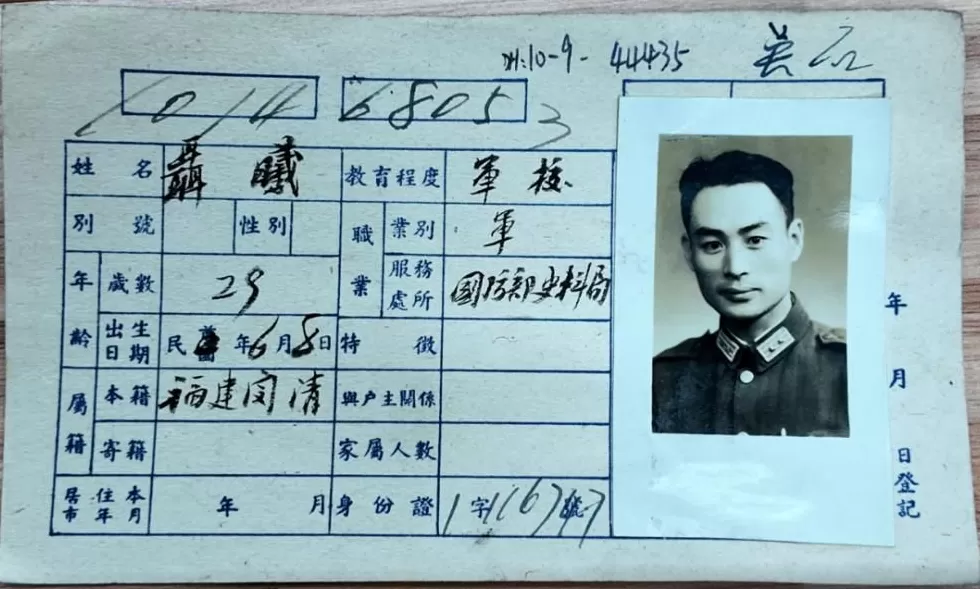 10-9- 44435
1014 68053
姓名 聶曦 教育程度 軍校
別號 性別 職業 業別 軍
年齡 歲數 29 服務處所 國防部史料局
出生日期 民 年6月8日 特徵
屬籍 本籍 福建闽清 與户主關係
寄籍 家屬人數
居住本市年月 年 月 身份證 字 號
年 月 日登記